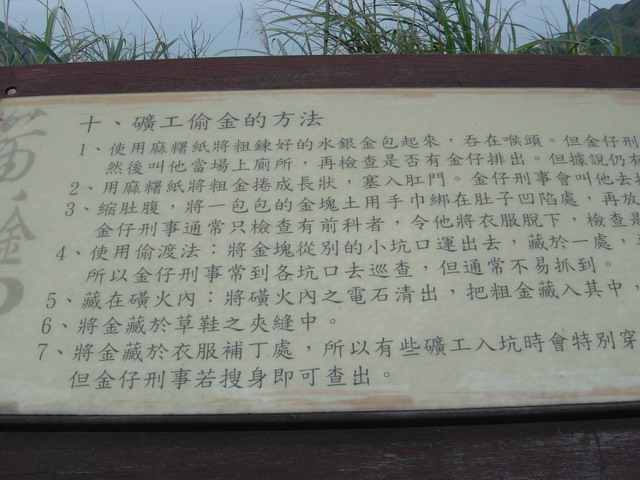 十、礦工偷金的方法
1、使用麻糬紙將粗鍊好的水銀金包起來，吞在喉頭。但金仔刑
然後叫他當場上廁所，再檢查是否有金仔排出。但據說仍
2、用麻糬紙將粗金捲成長狀，塞入肛門。金仔刑事會叫他去
3、縮肚腹，將一包包的金塊土用手巾綁在肚子凹陷處，再放
金仔刑事通常只檢查有前科者，令他將衣服脫下，檢查是
4、使用偷渡法：將金塊從別的小坑口運出去，藏於一處，
所以金仔刑事常到各坑口去巡查，但通常不易抓到。
5、藏在磺火內：將磺火內之電石清出，把粗金藏入其中，
6、將金藏於草鞋之夾縫中。
7、將金藏於衣服補丁處，所以有些礦工入坑時會特別穿
但金仔刑事若搜身即可查出。